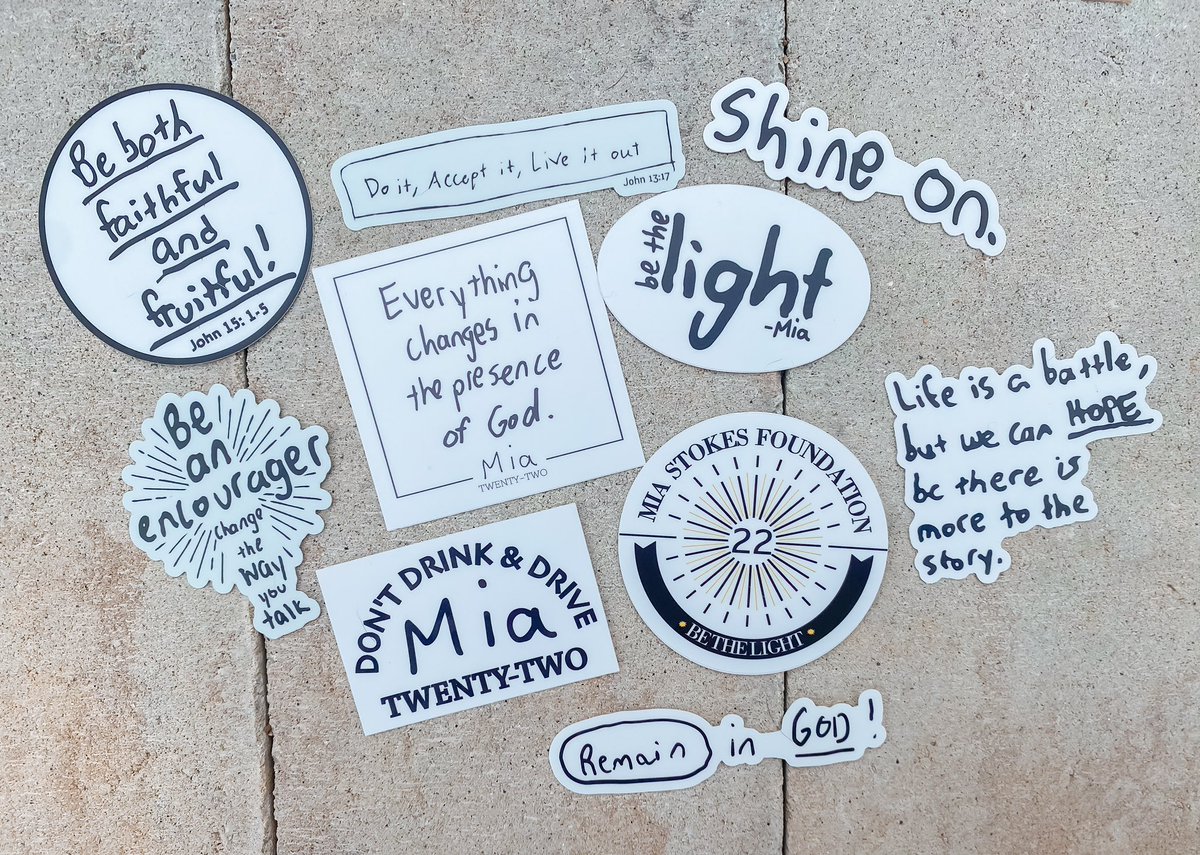 Be both
faithful
and
fruitful!
John 15: 1-5
Do it, Accept it, Live it out
John 13:17
Shine on.
Everything
changes in
the presence
of God.
Mia
TWENTY-TWO
be the
light
-Mia
Life is a battle,
but we can HOPE
be there is
more to the
story.
Be
an
encourager
change
the
way
you
talk
DON'T DRINK & DRIVE
Mia
TWENTY-TWO
MIA STOKES FOUNDATION
22
BETHELIGHT
Remain in GOD!